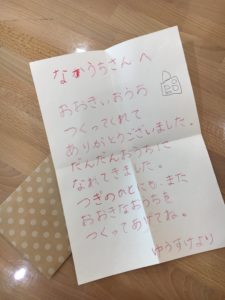 なかうちさんへ
おおきいおうち
つくってくれて
ありがとうございました。
だんだんおうちに
なれてきました。
つぎののとにも、また
おおきなおうちを
つくってあげてね。
ゆうすけより